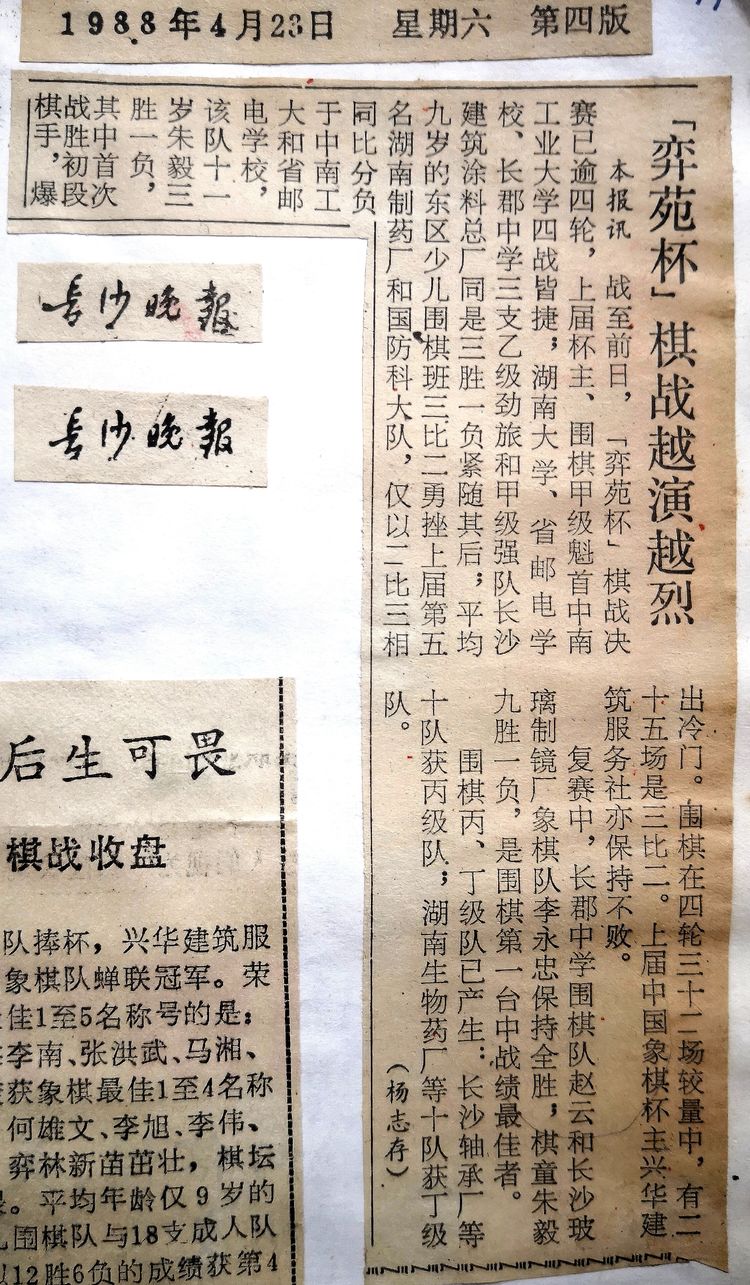 1988年4月23日 星期六 第四版
「弈苑杯」棋战越演越烈
本报讯 战至前日，「弈苑杯」棋战决
赛已逾四轮，上届杯主、围棋甲级魁首中南
工业大学四战皆捷；湖南大学、省邮电学
校、长郡中学三支乙级劲旅和甲级强队长沙
建筑涂料总厂同是三胜一负紧随其后；平均
九岁的东区少儿围棋班三比二勇挫上届第五
名湖南制药厂和国防科大队，仅以二比三相
同比分负
于中南工
大和省邮
电学校，
该队十一
岁朱毅三
胜一负，
其中首次
战胜初段
棋手，爆
出冷门。围棋在四轮三十二场较量中，有二
十五场是三比二。上届中国象棋杯主兴华建
筑服务社亦保持不败。
复赛中，长郡中学围棋队赵云和长沙玻
璃制镜厂象棋队李永忠保持全胜；棋童朱毅
九胜一负，是围棋第一台中战绩最佳者。
围棋丙、丁级队已产生：长沙轴承厂等
十队获丙级队；湖南生物药厂等十队获丁级
队。
（杨志存）
长沙晚报
长沙晚报
后生可畏
棋战收盘
队捧杯，兴华建筑服
象棋队蝉联冠军。荣
佳1至5名称号的是：
李南、张洪武、马湘、
获象棋最佳1至4名称
何雄文、李旭、李伟、
弈林新苗茁壮，棋坛
。平均年龄仅9岁的
围棋队与18支成人队
12胜6负的成绩获第4